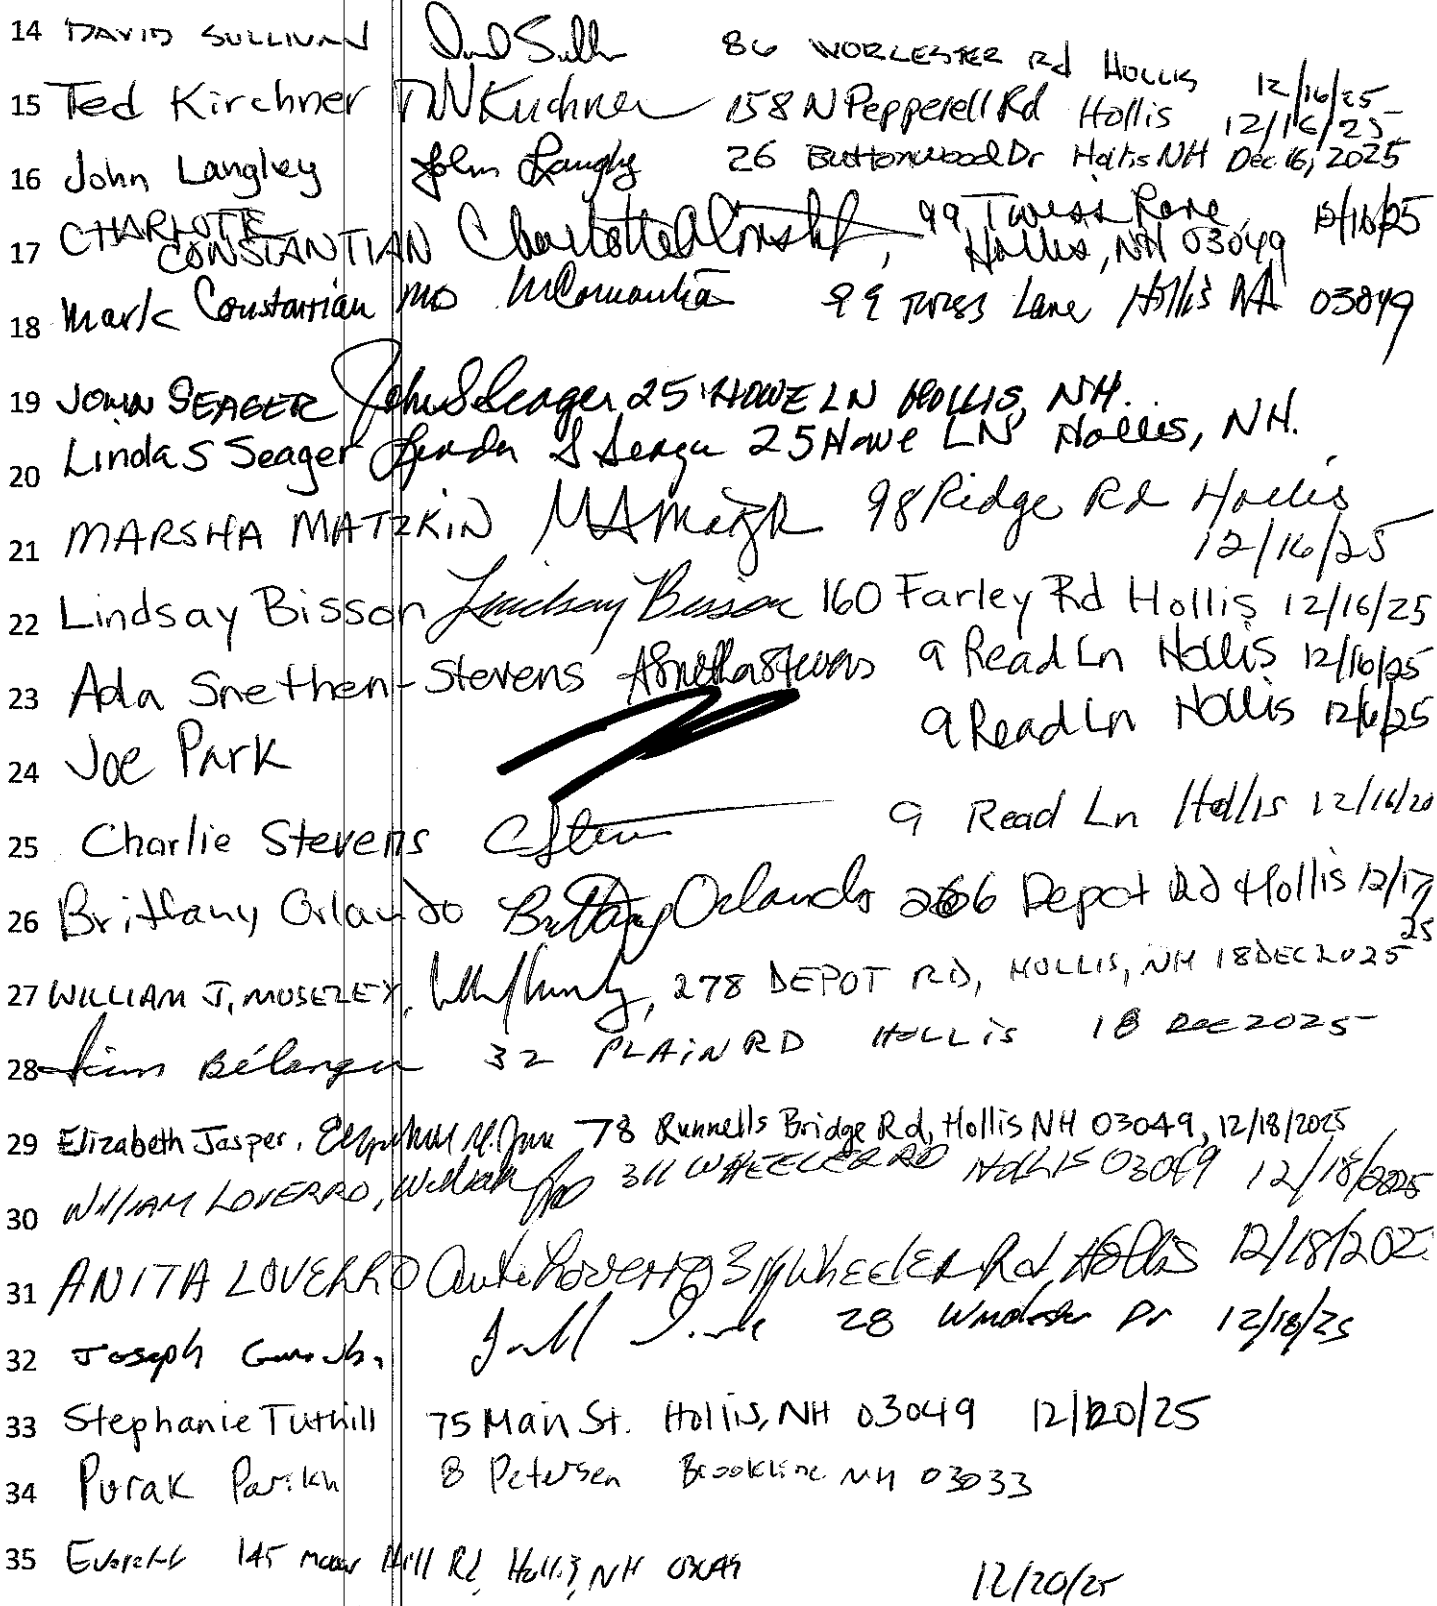 14 DAVID SULLIVAN David Sull 86 WORCESTER Rd HOLLIS 12/16/25
15 Ted Kirchner TW Kirchner 158 N Pepperell Rd Hollis 12/16/25
16 John Langley John Langley 26 Buttonwood Dr Hollis NH Dec 16, 2025
17 CHARLOTTE CONSTANTIAN 99 Twiss Lane, Hollis, NH 03049 12/16/25
18 Mark Constantian MD MConstantian 99 Twiss Lane Hollis NH 03049
19 JOHN SEAGER John S Seager 25 HOWE LN HOLLIS, NH.
20 Linda S Seager Linda S Seager 25 Howe LN Hollis, NH.
21 MARSHA MATZKIN 98 Ridge Rd Hollis
12/16/25
22 Lindsay Bisson Lindsay Bisson 160 Farley Rd Hollis 12/16/25
23 Ada Snethen-Stevens ASnethenStevens 9 Read Ln Hollis 12/16/25
24 Joe Park 9 Read Ln Hollis 12/16/25
25 Charlie Stevens 9 Read Ln Hollis 12/16/20
26 Brittany Orlando Brittany Orlando 266 Depot Rd Hollis 12/17/25
27 WILLIAM J. MOSELEY, 278 DEPOT RD, HOLLIS, NH 18DEC2025
28 Bélanger 32 PLAIN RD HOLLIS 18 Dec 2025
29 Elizabeth Jasper, 78 Runnells Bridge Rd, Hollis NH 03049, 12/18/2025
30 William LOVERRO, William 311 WHEELER RD HOLLIS 03049 12/18/2025
31 ANITA LOVERRO Anita Loverro 311 WHEELER Rd Hollis 12/18/202
32 Joseph 28 Dr 12/18/25
33 Stephanie Tuthill 75 Main St. Hollis, NH 03049 12/20/25
34 Purak Parikh 8 Petersen Brookline NH 03033
35 Everett 145 Hill Rd, Hollis, NH 03049 12/20/25